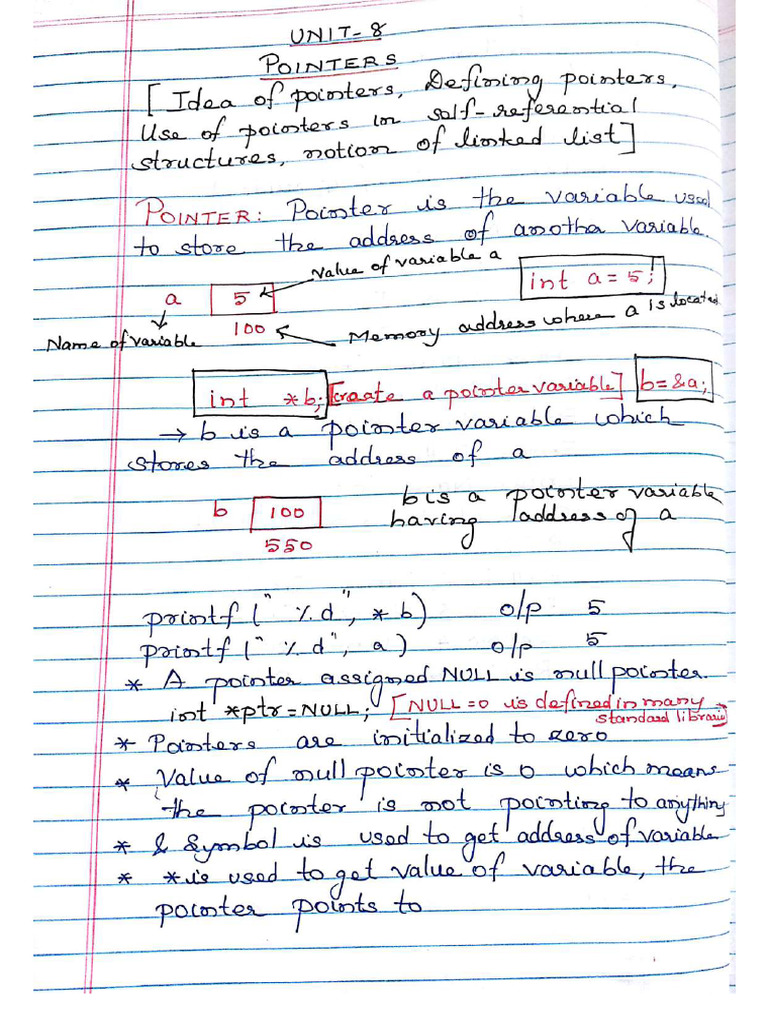 UNIT-8
POINTERS
[Idea of pointers, Defining pointers,
Use of pointers in self-referential
structures, notion of linked list]
POINTER: Pointer is the variable used
to store the address of another variable.
Value of variable a
int a = 5;
a 5
100
Name of variable
Memory address where a is located
int *b; [Create a pointer variable] b=&a;
→ b is a pointer variable which
stores the address of a
b 100
550
b is a pointer variable
having address of a
printf (" %d", *b) o/p 5
printf (" %d", a) o/p 5
* A pointer assigned NULL is null pointer.
int *ptr=NULL; [NULL =0 is defined in many
standard libraries]
* Pointers are initialized to zero
* Value of null pointer is 0 which means
the pointer is not pointing to anything
* & Symbol is used to get address of variable
* * is used to get value of variable, the
pointer points to